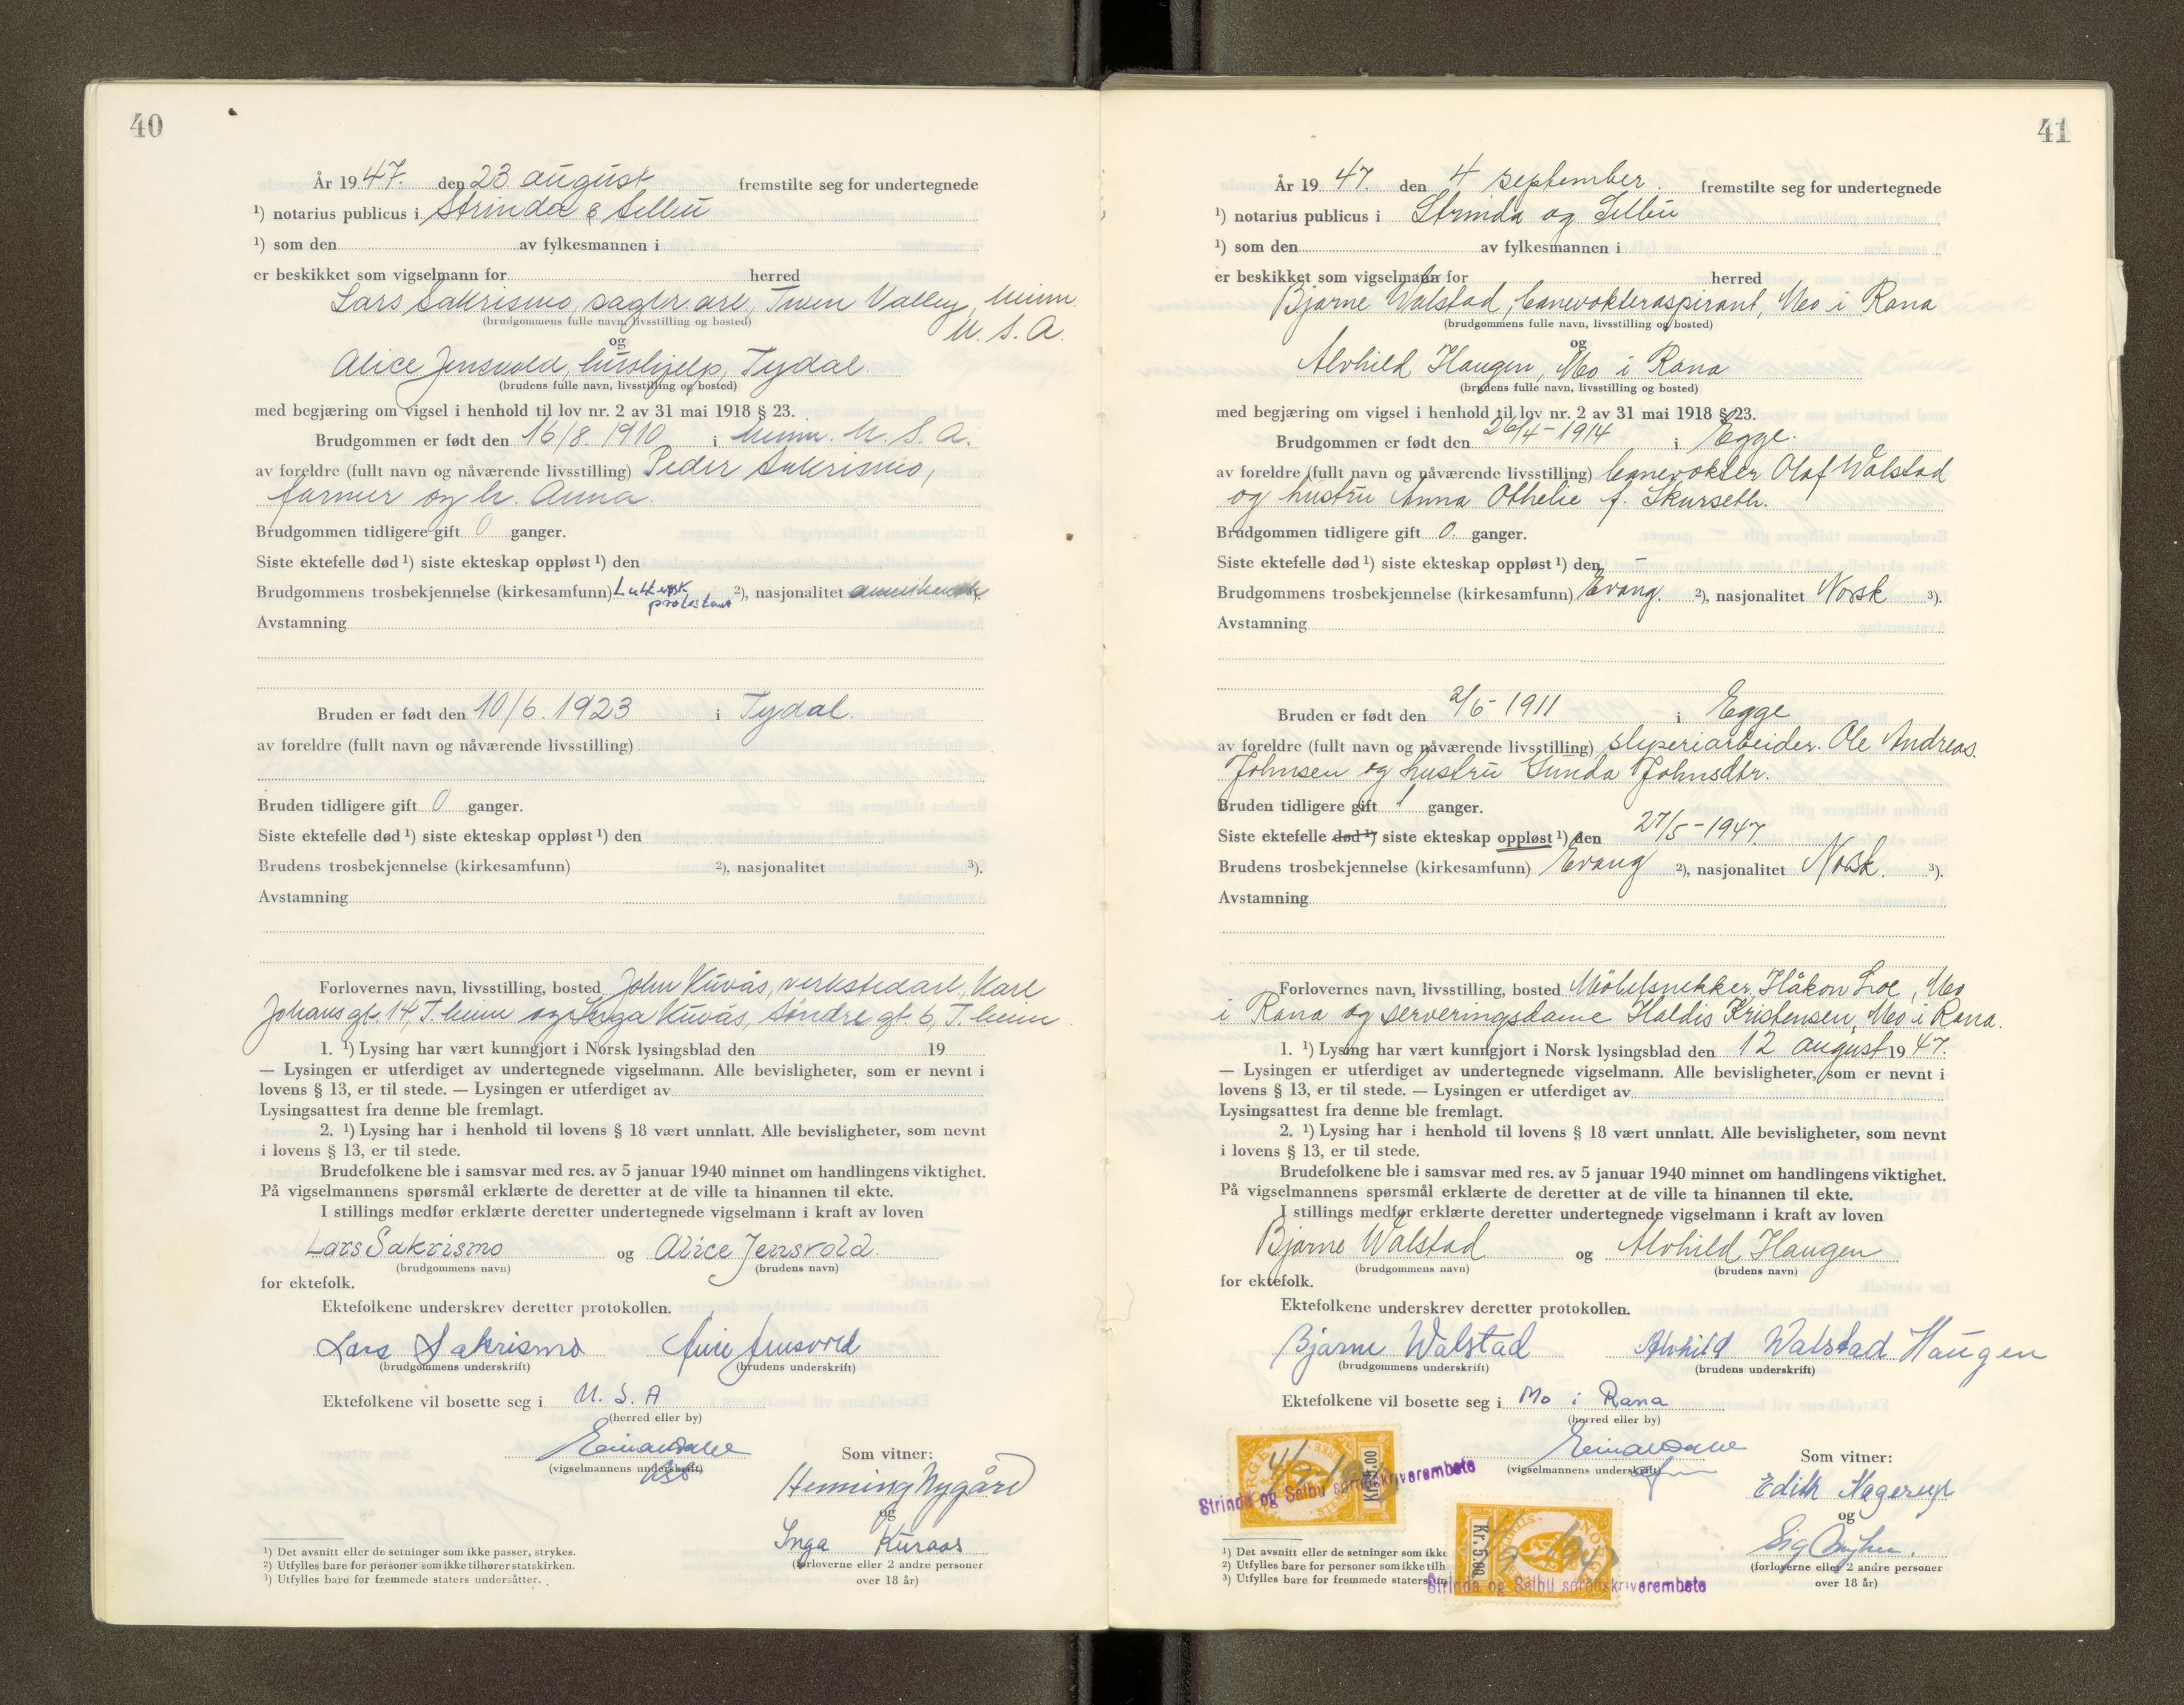 40
År 1947. den 23 august fremstilte seg for undertegnede
¹) notarius publicus i Strinda & Selbu
¹) som den av fylkesmannen i
er beskikket som vigselmann for herred
Lars Sakrismo, sagbr.arb., Twin Valley, Minn.
(brudgommens fulle navn, livsstilling og bosted)
U. S. A.
og
Alice Jensvold, hushjelp, Tydal.
(brudens fulle navn, livsstilling og bosted)
med begjæring om vigsel i henhold til lov nr. 2 av 31 mai 1918 § 23.
Brudgommen er født den 16/8 1910 i Minn. U. S. A.
av foreldre (fullt navn og nåværende livsstilling) Peder Sakrismo,
farmer og h. Anna.
Brudgommen tidligere gift 0 ganger.
Siste ektefelle død ¹) siste ekteskap oppløst ¹) den
Brudgommens trosbekjennelse (kirkesamfunn) Luthersk
protestant ²), nasjonalitet amerikansk ³).
Avstamning
Bruden er født den 10/6. 1923 i Tydal.
av foreldre (fullt navn og nåværende livsstilling)
Bruden tidligere gift 0 ganger.
Siste ektefelle død ¹) siste ekteskap oppløst ¹) den
Brudens trosbekjennelse (kirkesamfunn) ²), nasjonalitet ³).
Avstamning
Forlovernes navn, livsstilling, bosted John Kuvås, verkstedarb., Karl
Johansgt. 14, T.heim og Inga Kuvås, Søndre gt. 6, T.heim
1. ¹) Lysing har vært kunngjort i Norsk lysingsblad den 19
— Lysingen er utferdiget av undertegnede vigselmann. Alle bevisligheter, som er nevnt i
lovens § 13, er til stede. — Lysingen er utferdiget av
Lysingsattest fra denne ble fremlagt.
2. ¹) Lysing har i henhold til lovens § 18 vært unnlatt. Alle bevisligheter, som nevnt
i lovens § 13, er til stede.
Brudefolkene ble i samsvar med res. av 5 januar 1940 minnet om handlingens viktighet.
På vigselmannens spørsmål erklærte de deretter at de ville ta hinannen til ekte.
I stillings medfør erklærte deretter undertegnede vigselmann i kraft av loven
Lars Sakrismo og Alice Jensvold.
(brudgommens navn) (brudens navn)
for ektefolk.
Ektefolkene underskrev deretter protokollen.
Lars Sakrismo Alice Jensvold
(brudgommens underskrift) (brudens underskrift)
Ektefolkene vil bosette seg i U. S. A
(herred eller by)
(vigselmannens underskrift)
Som vitner:
Henning Nygård
og
Inga Kuraas
(forloverne eller 2 andre personer
over 18 år)
¹) Det avsnitt eller de setninger som ikke passer, strykes.
²) Utfylles bare for personer som ikke tilhører statskirken.
³) Utfylles bare for fremmede staters undersåtter.
41
År 1947. den 4 september. fremstilte seg for undertegnede
¹) notarius publicus i Strinda og Selbu
¹) som den av fylkesmannen i
er beskikket som vigselmann for herred
Bjarne Walstad, banevokteraspirant, Mo i Rana
(brudgommens fulle navn, livsstilling og bosted)
og
Alvhild Haugen, Mo i Rana
(brudens fulle navn, livsstilling og bosted)
med begjæring om vigsel i henhold til lov nr. 2 av 31 mai 1918 § 23.
Brudgommen er født den 26/4-1914 i Egge.
av foreldre (fullt navn og nåværende livsstilling) banevokter Olaf Walstad
og hustru Anna Othelie f. Skurseth.
Brudgommen tidligere gift 0. ganger.
Siste ektefelle død ¹) siste ekteskap oppløst ¹) den
Brudgommens trosbekjennelse (kirkesamfunn) Evang. ²), nasjonalitet Norsk ³).
Avstamning
Bruden er født den 2/6-1911 i Egge
av foreldre (fullt navn og nåværende livsstilling) sliperiarbeider. Ole Andreas
Johnsen og hustru Gunda Johnsdtr.
Bruden tidligere gift 1 ganger.
Siste ektefelle død ¹) siste ekteskap oppløst ¹) den 27/5-1947
Brudens trosbekjennelse (kirkesamfunn) Evang ²), nasjonalitet Norsk. ³).
Avstamning
Forlovernes navn, livsstilling, bosted Möbelsnekker, Håkon Loe, Mo
i Rana og serveringsdame Haldis Kristensen, Mo i Rana.
1. ¹) Lysing har vært kunngjort i Norsk lysingsblad den 12 august 1947.
— Lysingen er utferdiget av undertegnede vigselmann. Alle bevisligheter, som er nevnt i
lovens § 13, er til stede. — Lysingen er utferdiget av
Lysingsattest fra denne ble fremlagt.
2. ¹) Lysing har i henhold til lovens § 18 vært unnlatt. Alle bevisligheter, som nevnt
i lovens § 13, er til stede.
Brudefolkene ble i samsvar med res. av 5 januar 1940 minnet om handlingens viktighet.
På vigselmannens spørsmål erklærte de deretter at de ville ta hinannen til ekte.
I stillings medfør erklærte deretter undertegnede vigselmann i kraft av loven
Bjarne Walstad og Alvhild Haugen
(brudgommens navn) (brudens navn)
for ektefolk.
Ektefolkene underskrev deretter protokollen.
Bjarne Walstad Alvhild Walstad Haugen
(brudgommens underskrift) (brudens underskrift)
Ektefolkene vil bosette seg i Mo i Rana
(herred eller by)
(vigselmannens underskrift)
Som vitner:
Edith Hagerup
og
(forloverne eller 2 andre personer
over 18 år)
Strinda og Selbu sorenskriverembete
Kr. 5.00
Strinda og Selbu sorenskriverembete
¹) Det avsnitt eller de setninger som ikke
²) Utfylles bare for personer som ikke tilh
³) Utfylles bare for fremmede staters